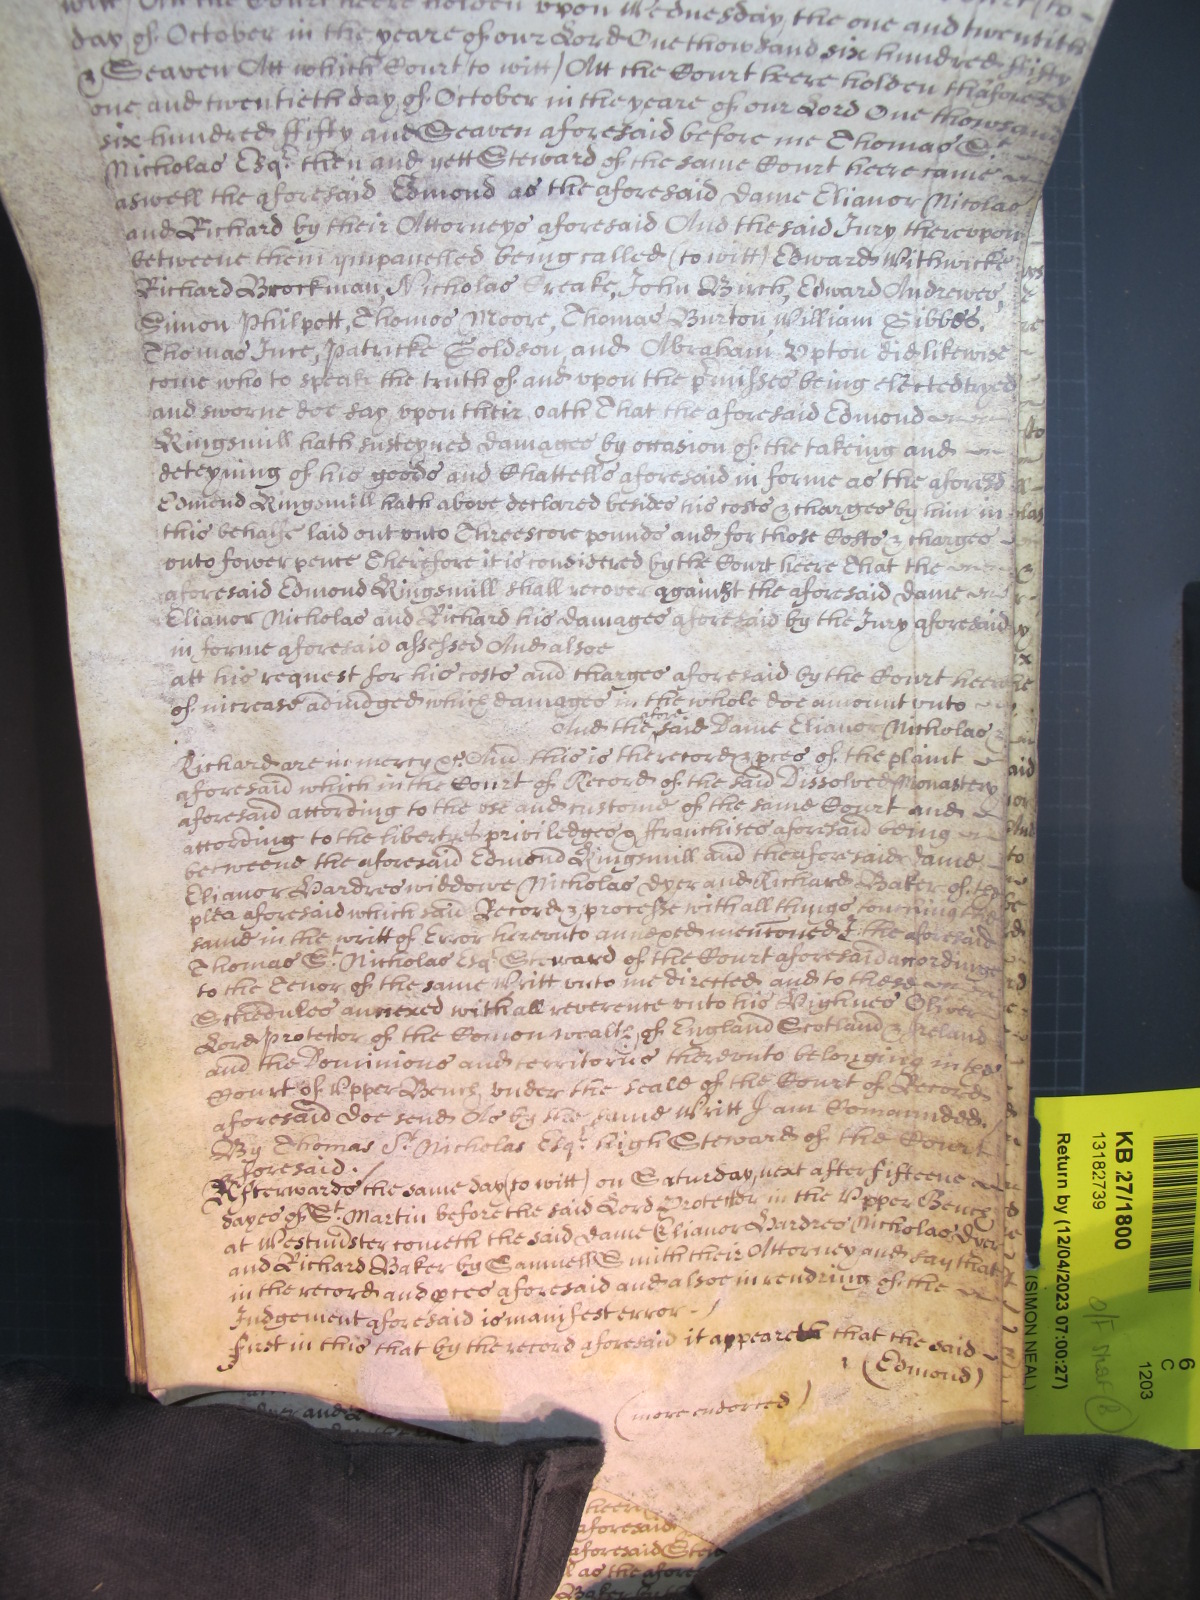 witt) Att the Court heere holden vpon Wednesday, the one and twentith
day of October in the yeare of our Lord One thowsand six hundred ffifty
& Seaven Att which Court (to witt) Att the Court heere holden thaforesd
one and twentieth day of October in the yeare of our Lord One thowsand
six hundred ffifty and Seaven aforesaid before me Thomas St
Nicholas Esqr then and yett Steward of the same Court heere came
aswell the aforesaid Edmond as the aforesaid Dame Elianor Nicolas
and Richard by their Attorneys aforesaid And the said Jury therevpon
betweene them ympanelled being called (to witt) Edward Withwicke
Richard Brockman, Nicholas Creake, John Birch, Edward Andrewes,
Simon Philpott, Thomas Moore, Thomas Burton, William Gibbes,
Thomas Juce, Patricke Goldson, and Abraham Vpton did likewise
come who to speake the truth of and vpon the pmisses being elected tryed
and sworne doe say vpon their oath That the aforesaid Edmond
Kingsmill hath susteyned damages by occasion of the takeing and
deteyning of his goods and Chattells aforesaid in forme as the aforesd
Edmond Kingsmill hath above declared besides his costs & charges by him in
this behalfe laid out vnto Threescore pounds and for those Costs & charges
vnto fower pence Therefore it is considered by the Court heere That the
aforesaid Edmond Kingsmill shall recover against the aforesaid Dame
Elianor Nicholas and Richard his damages aforesaid by the Jury aforesaid
in forme aforesaid assessed And alsoe
att his request for his costs and charges aforesaid by the Court heere
of increase adiudged which damages in the whole doe amount vnto
And the afore said Dame Elianor Nicholas &
Richard are in mercy &c And this is the record & pces of the plaint
aforesaid which in the Court of Record of the said Dissolved Monastery
aforesaid according to the vse and custome of the same Court and
according to the libertyes priviledges & ffranchises aforesaid being
betweene the aforesaid Edmond Kingsmill and the aforesaid Dame
Elianor Hardres widdowe Nicholas Dyer and Richard Baker of the
plea aforesaid which said Record & processe with all things touching the
same in the writt of Error herevnto annexed mentioned I the aforesaid
Thomas St Nicholas Esqr Steward of the Court aforesaid accordinge
to the Tenor of the same Writt vnto me directed and to these
Schedules annexed with all reverence vnto his Highnes Oliver
Lord Protector of the Comon wealth of England Scotland & Ireland
and the Dominions and territories therevnto belonging in the
Court of Vpper Bench, vnder the seale of the Court of Record
aforesaid doe send As by the same Writt I am Comaunded.
By Thomas St Nicholas Esqr high Steward of the Court
aforesaid.
Afterwards the same day (to witt) on Saturday next after fifteene
dayes of St Martin before the said Lord Protector in the Vpper Bench
at Westminster cometh the said Dame Elianor Hardres Nicholas Dyer
and Richard Baker by Samuell Smith their Attorney and say that
in the record and pces aforesaid and alsoe in rendring of the
Judgement aforesaid is manifest error
First in this that by the record aforesaid it appeareth that the said
(Edmond)
(more endorced)
heere
aforesaid
aforesaid Stew
as the afore
Baker by th
KB 27/1800
13182739
Return by (12/04/2023 07:00:27)
(SIMON NEAL)
6
C
1203